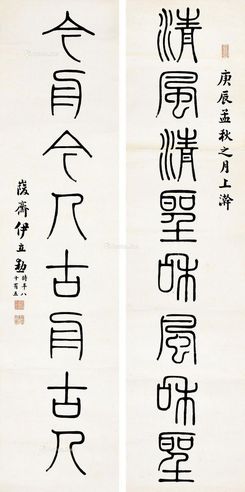 庚辰孟秋之月上澣
清風清聖和風和聖
今月今人古月古人
葰齋伊立勳
時年八
十有五